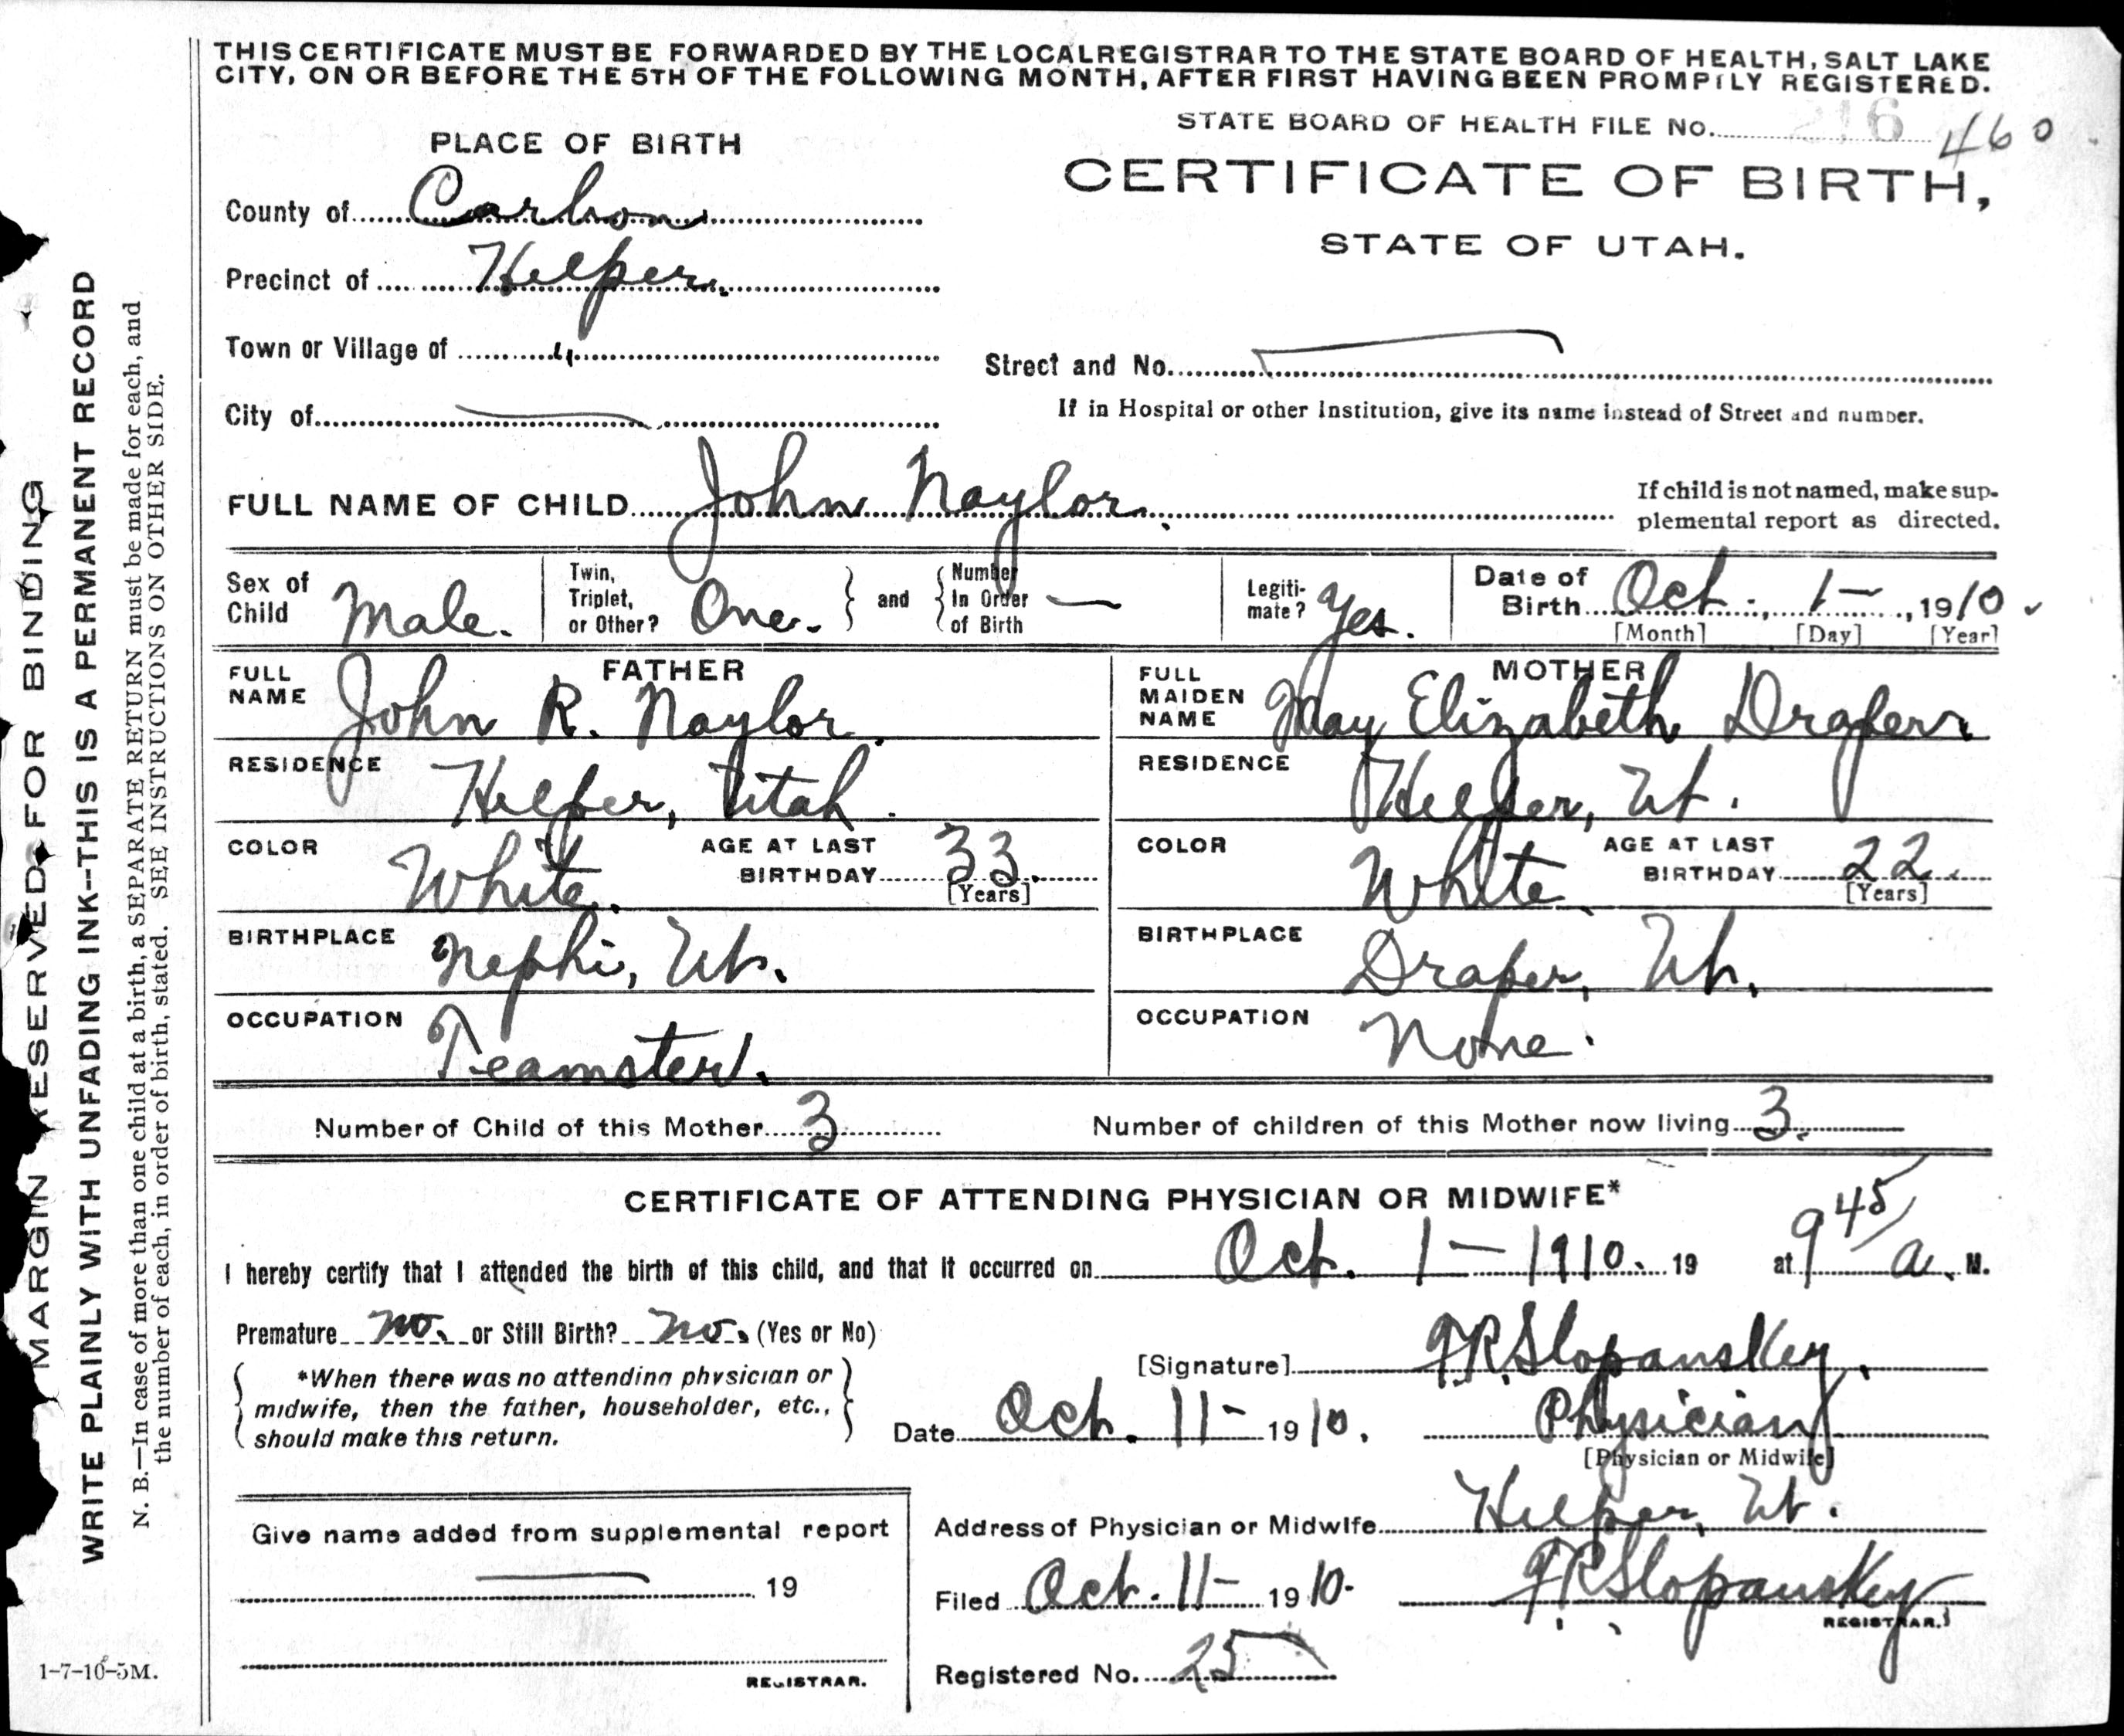 THIS CERTIFICATE MUST BE FORWARDED BY THE LOCAL REGISTRAR TO THE STATE BOARD OF HEALTH, SALT LAKE
CITY, ON OR BEFORE THE 5TH OF THE FOLLOWING MONTH, AFTER FIRST HAVING BEEN PROMPTLY REGISTERED.
STATE BOARD OF HEALTH FILE No. 216 460
PLACE OF BIRTH
CERTIFICATE OF BIRTH,
STATE OF UTAH.
County of Carbon
Precinct of Helper.
Town or Village of "
Street and No.
City of
If in Hospital or other Institution, give its name instead of Street and number.
FULL NAME OF CHILD John Naylor.
If child is not named, make sup-
plemental report as directed.
Sex of Child Male.
Twin, Triplet, or Other? One. and Number In Order of Birth —
Legiti-mate? Yes.
Date of Birth Oct. 1— , 1910.
[Month] [Day] [Year]
FATHER
FULL NAME John R. Naylor.
RESIDENCE Helper, Utah.
COLOR White. AGE AT LAST BIRTHDAY 33.
[Years]
BIRTHPLACE Nephi, Ut.
OCCUPATION Teamster.
MOTHER
FULL MAIDEN NAME May Elizabeth Draper
RESIDENCE Helper, Ut.
COLOR White. AGE AT LAST BIRTHDAY 22.
[Years]
BIRTHPLACE Draper, Ut.
OCCUPATION None.
Number of Child of this Mother 3
Number of children of this Mother now living 3.
CERTIFICATE OF ATTENDING PHYSICIAN OR MIDWIFE*
I hereby certify that I attended the birth of this child, and that it occurred on Oct. 1— 1910. 19 at 9 45/ a. M.
Premature no. or Still Birth? no. (Yes or No)
*When there was no attending physician or
midwife, then the father, householder, etc.,
should make this return.
[Signature] F.R. Slopanskey.
Date Oct. 11- 1910. Physician
[Physician or Midwife]
Give name added from supplemental report
19
REGISTRAR.
Address of Physician or Midwife Helper, Ut.
Filed Oct. 11- 1910. F.R. Slopanskey
REGISTRAR.
Registered No. 25
MARGIN RESERVED FOR BINDING
WRITE PLAINLY WITH UNFADING INK--THIS IS A PERMANENT RECORD
N. B.—In case of more than one child at a birth, a SEPARATE RETURN must be made for each, and
the number of each, in order of birth, stated. SEE INSTRUCTIONS ON OTHER SIDE.
1-7-10-5M.